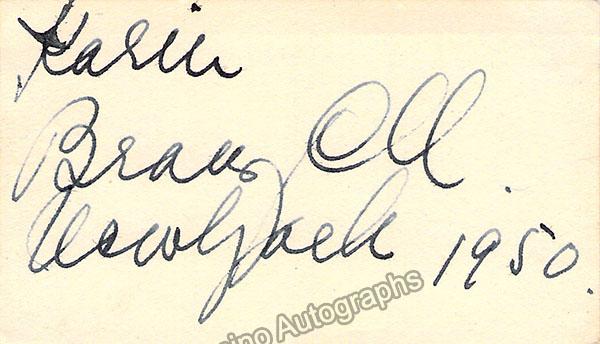 Karin
Branzell.
New York 1950.
ino Autographs